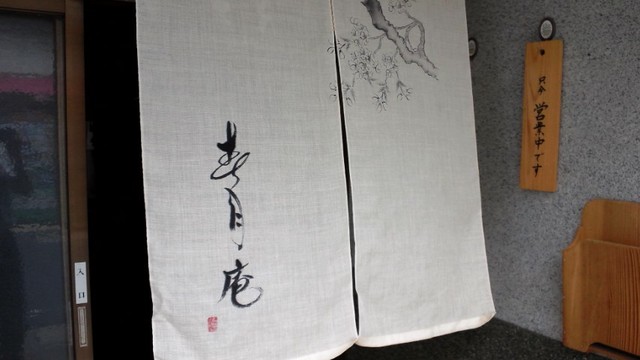 春月庵
只今営業中です
入口